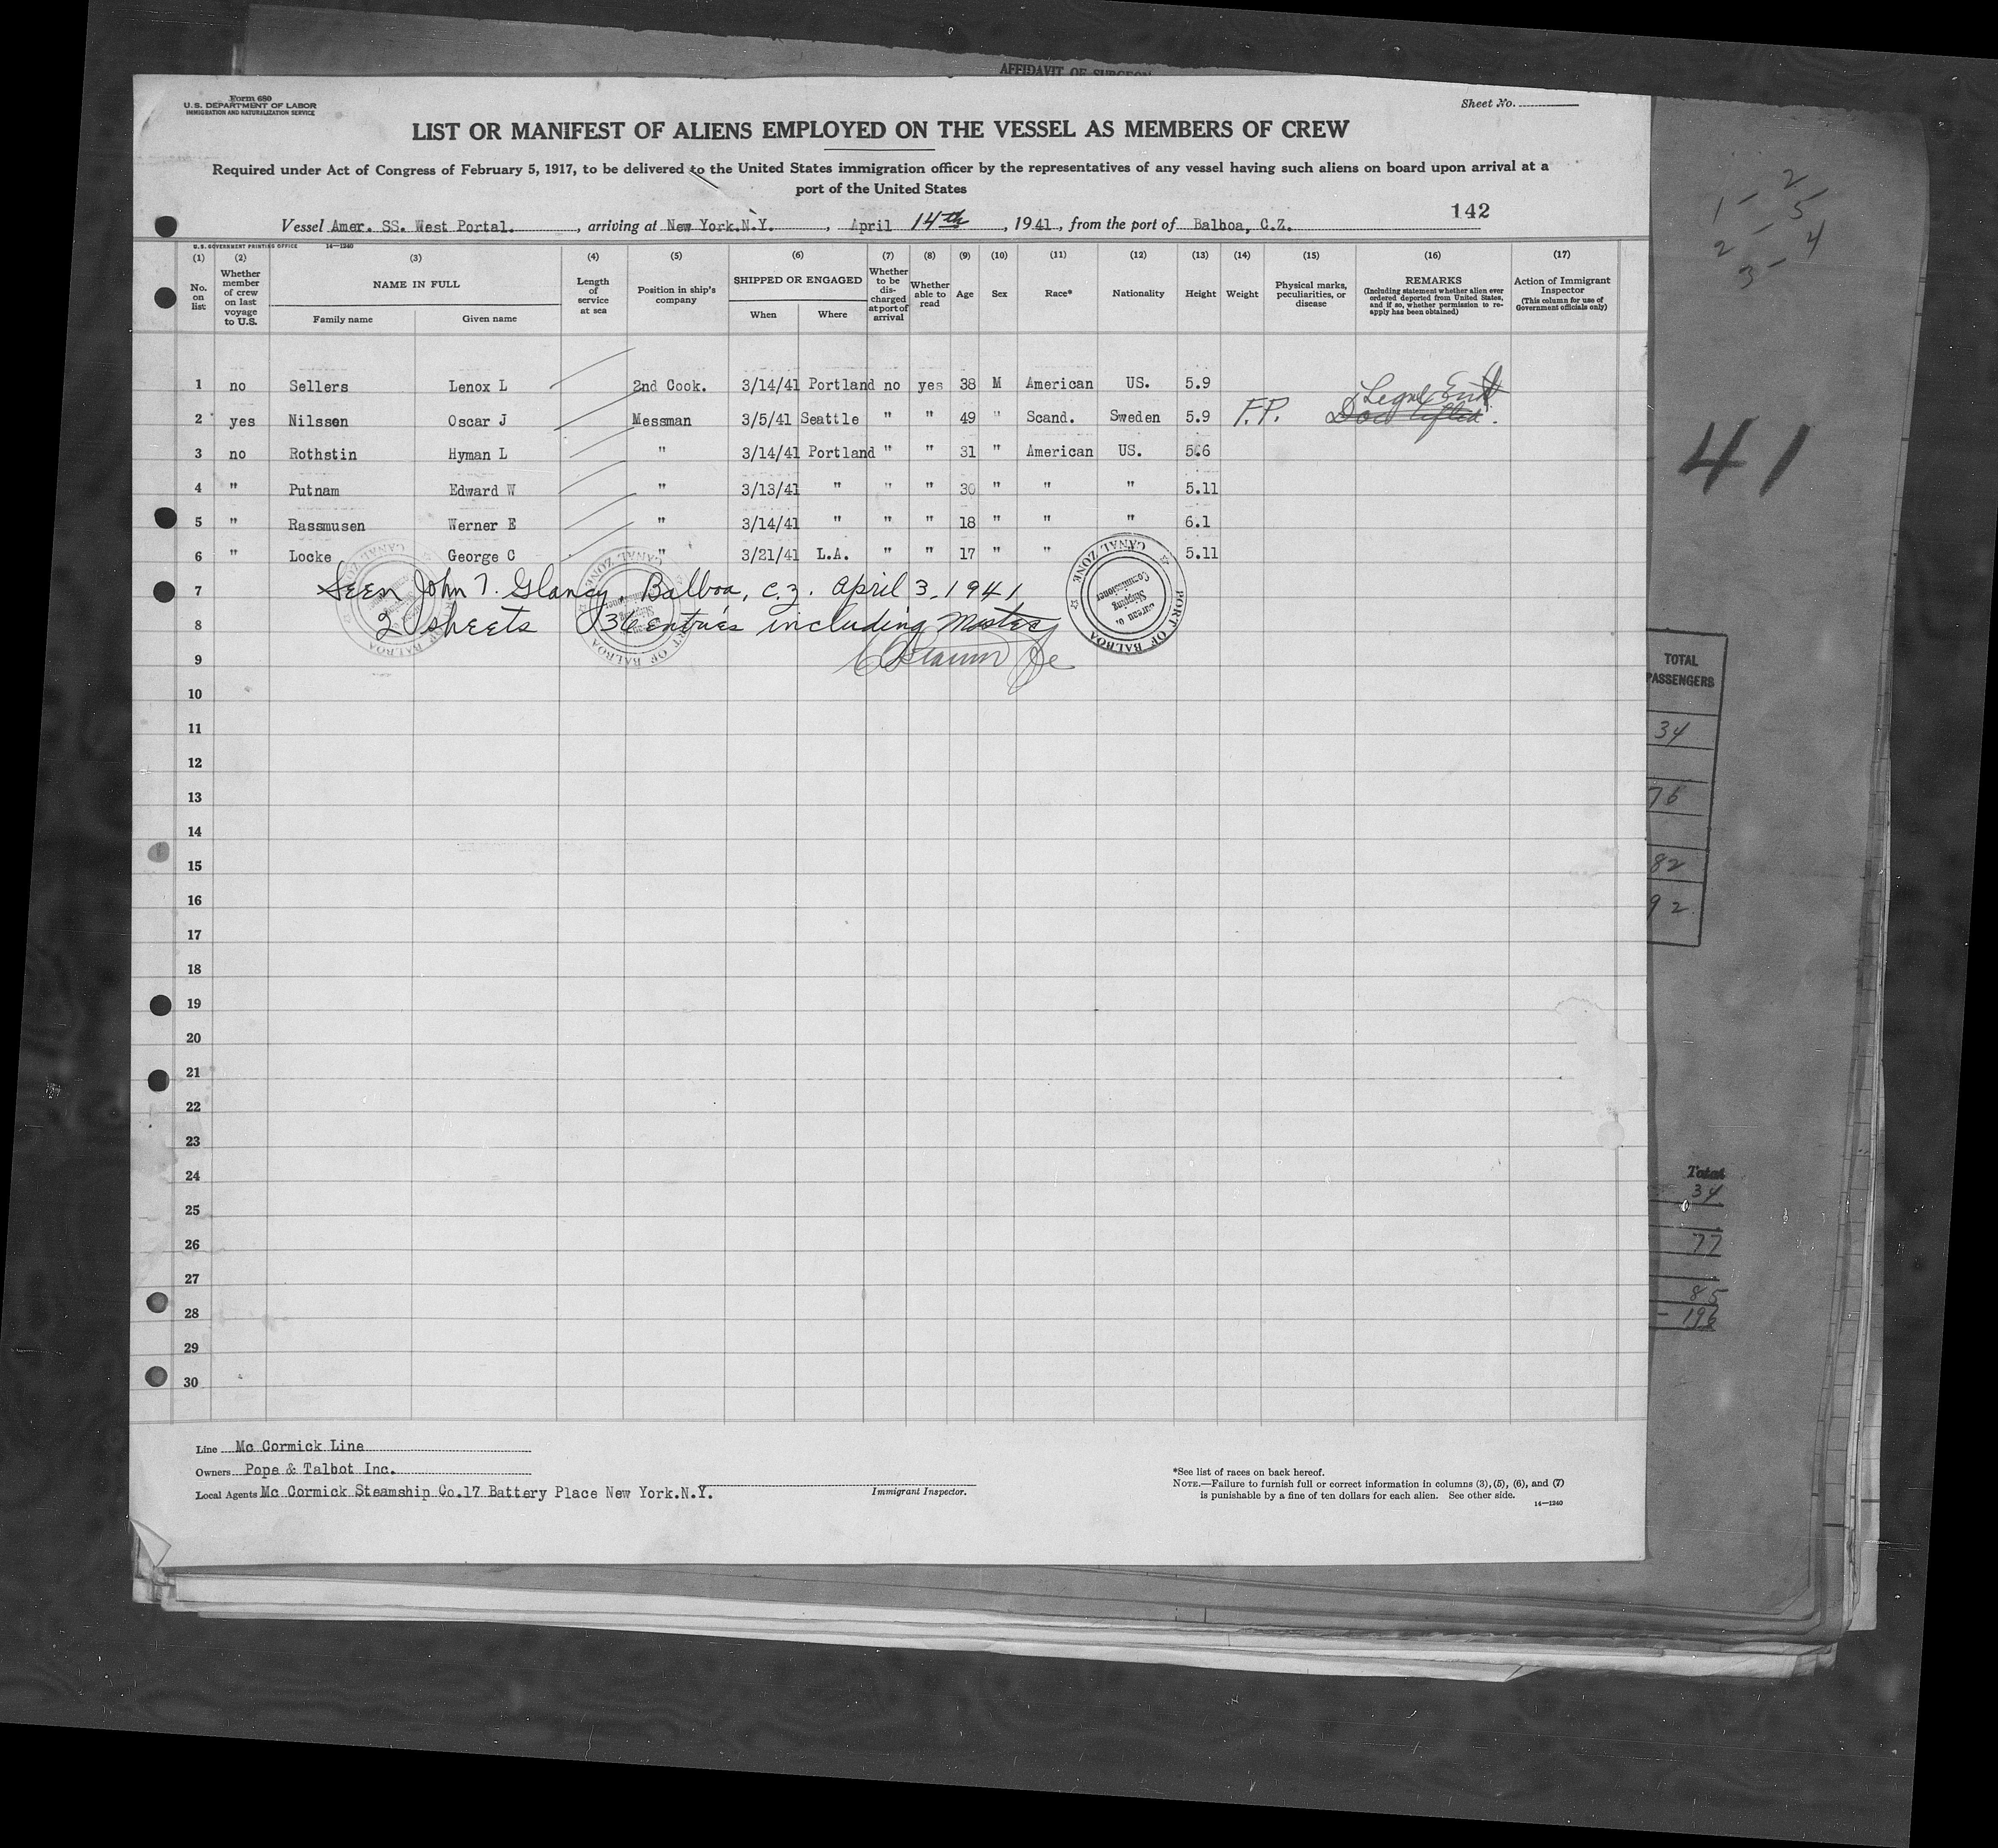 AFFIDAVIT OF SURGEON
Form 680
U.S. DEPARTMENT OF LABOR
IMMIGRATION AND NATURALIZATION SERVICE
Sheet No.
LIST OR MANIFEST OF ALIENS EMPLOYED ON THE VESSEL AS MEMBERS OF CREW
Required under Act of Congress of February 5, 1917, to be delivered to the United States immigration officer by the representatives of any vessel having such aliens on board upon arrival at a
port of the United States
142
Vessel Amer. SS. West Portal. , arriving at New York.N.Y. , April 14th , 1941, from the port of Balboa, C.Z.
U.S. GOVERNMENT PRINTING OFFICE 14—1240
(1) No. on list
(2) Whether member of crew on last voyage to U.S.
(3) NAME IN FULL Family name Given name
(4) Length of service at sea
(5) Position in ship's company
(6) SHIPPED OR ENGAGED When Where
(7) Whether to be discharged at port of arrival
(8) Whether able to read
(9) Age
(10) Sex
(11) Race*
(12) Nationality
(13) Height
(14) Weight
(15) Physical marks, peculiarities, or disease
(16) REMARKS (Including statement whether alien ever ordered deported from United States, and if so, whether permission to reapply has been obtained)
(17) Action of Immigrant Inspector (This column for use of Government officials only)
1 no Sellers Lenox L 2nd Cook. 3/14/41 Portland no yes 38 M American US. 5.9
2 yes Nilssen Oscar J Messman 3/5/41 Seattle " " 49 " Scand. Sweden 5.9 F.P. Legal Ent
3 no Rothstin Hyman L " 3/14/41 Portland " " 31 " American US. 5.6
4 " Putnam Edward W " 3/13/41 " " " 30 " " " 5.11
5 " Rassmusen Werner E " 3/14/41 " " " 18 " " " 6.1
6 " Locke George C " 3/21/41 L.A. " " 17 " " 5.11
7 Seen John T. Glancy, Balboa, C.Z. April 3, 1941
8 2 sheets 36 entries including Master
9
10
11
12
13
14
15
16
17
18
19
20
21
22
23
24
25
26
27
28
29
30
PORT OF BALBOA CANAL ZONE Shipping Commissioner
Line Mc Cormick Line
Owners Pope & Talbot Inc.
Local Agents Mc Cormick Steamship Co.17 Battery Place New York.N.Y.
Immigrant Inspector.
*See list of races on back hereof.
NOTE.—Failure to furnish full or correct information in columns (3), (5), (6), and (7)
is punishable by a fine of ten dollars for each alien. See other side.
14—1240
41
TOTAL
PASSENGERS
34
76
82
92
Total
34
77
85
196